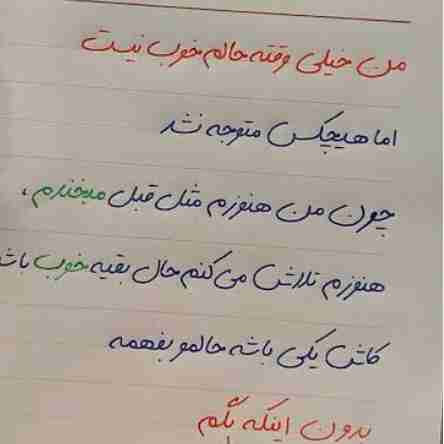 من خیلی وقته حالم خوب نیست
اما هیچکس متوجه نشد
چون من هنوزم مثل قبل میخندم ،
هنوزم تلاش می کنم حال بقیه خوب باش
کاش یکی باشه حالمو بفهمه
بدون اینکه بگم